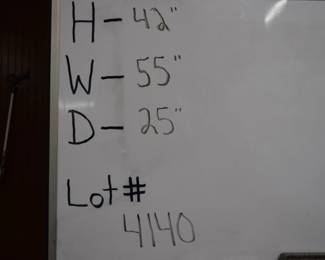 H - 42"
W - 55"
D - 25"
Lot #
4140